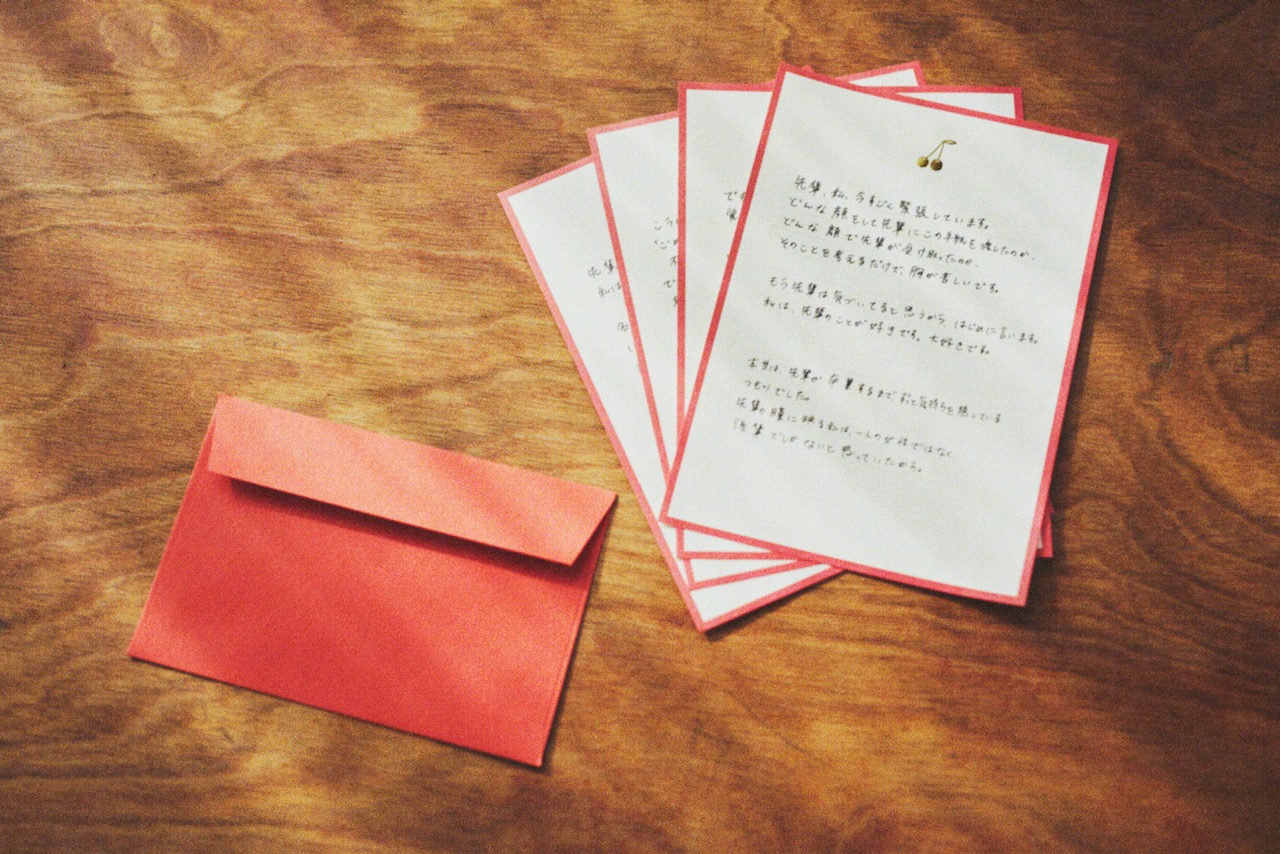 先輩、私、今すごく緊張しています。
どんな顔をして先輩にこの手紙を渡したのか、
どんな顔で先輩が受け取ったのか、
そのことを考えるだけで、胸が苦しいです。
もう先輩は気づいてると思うから、はじめに言います。
私は、先輩のことが好きです。大好きです。
本当は、先輩が卒業するまで、ずっと気持ちを隠している
つもりでした。
先輩の瞳に映る私は、一人の女性ではなく、
後輩でしかないと思っていたから。
先輩
私は
こう